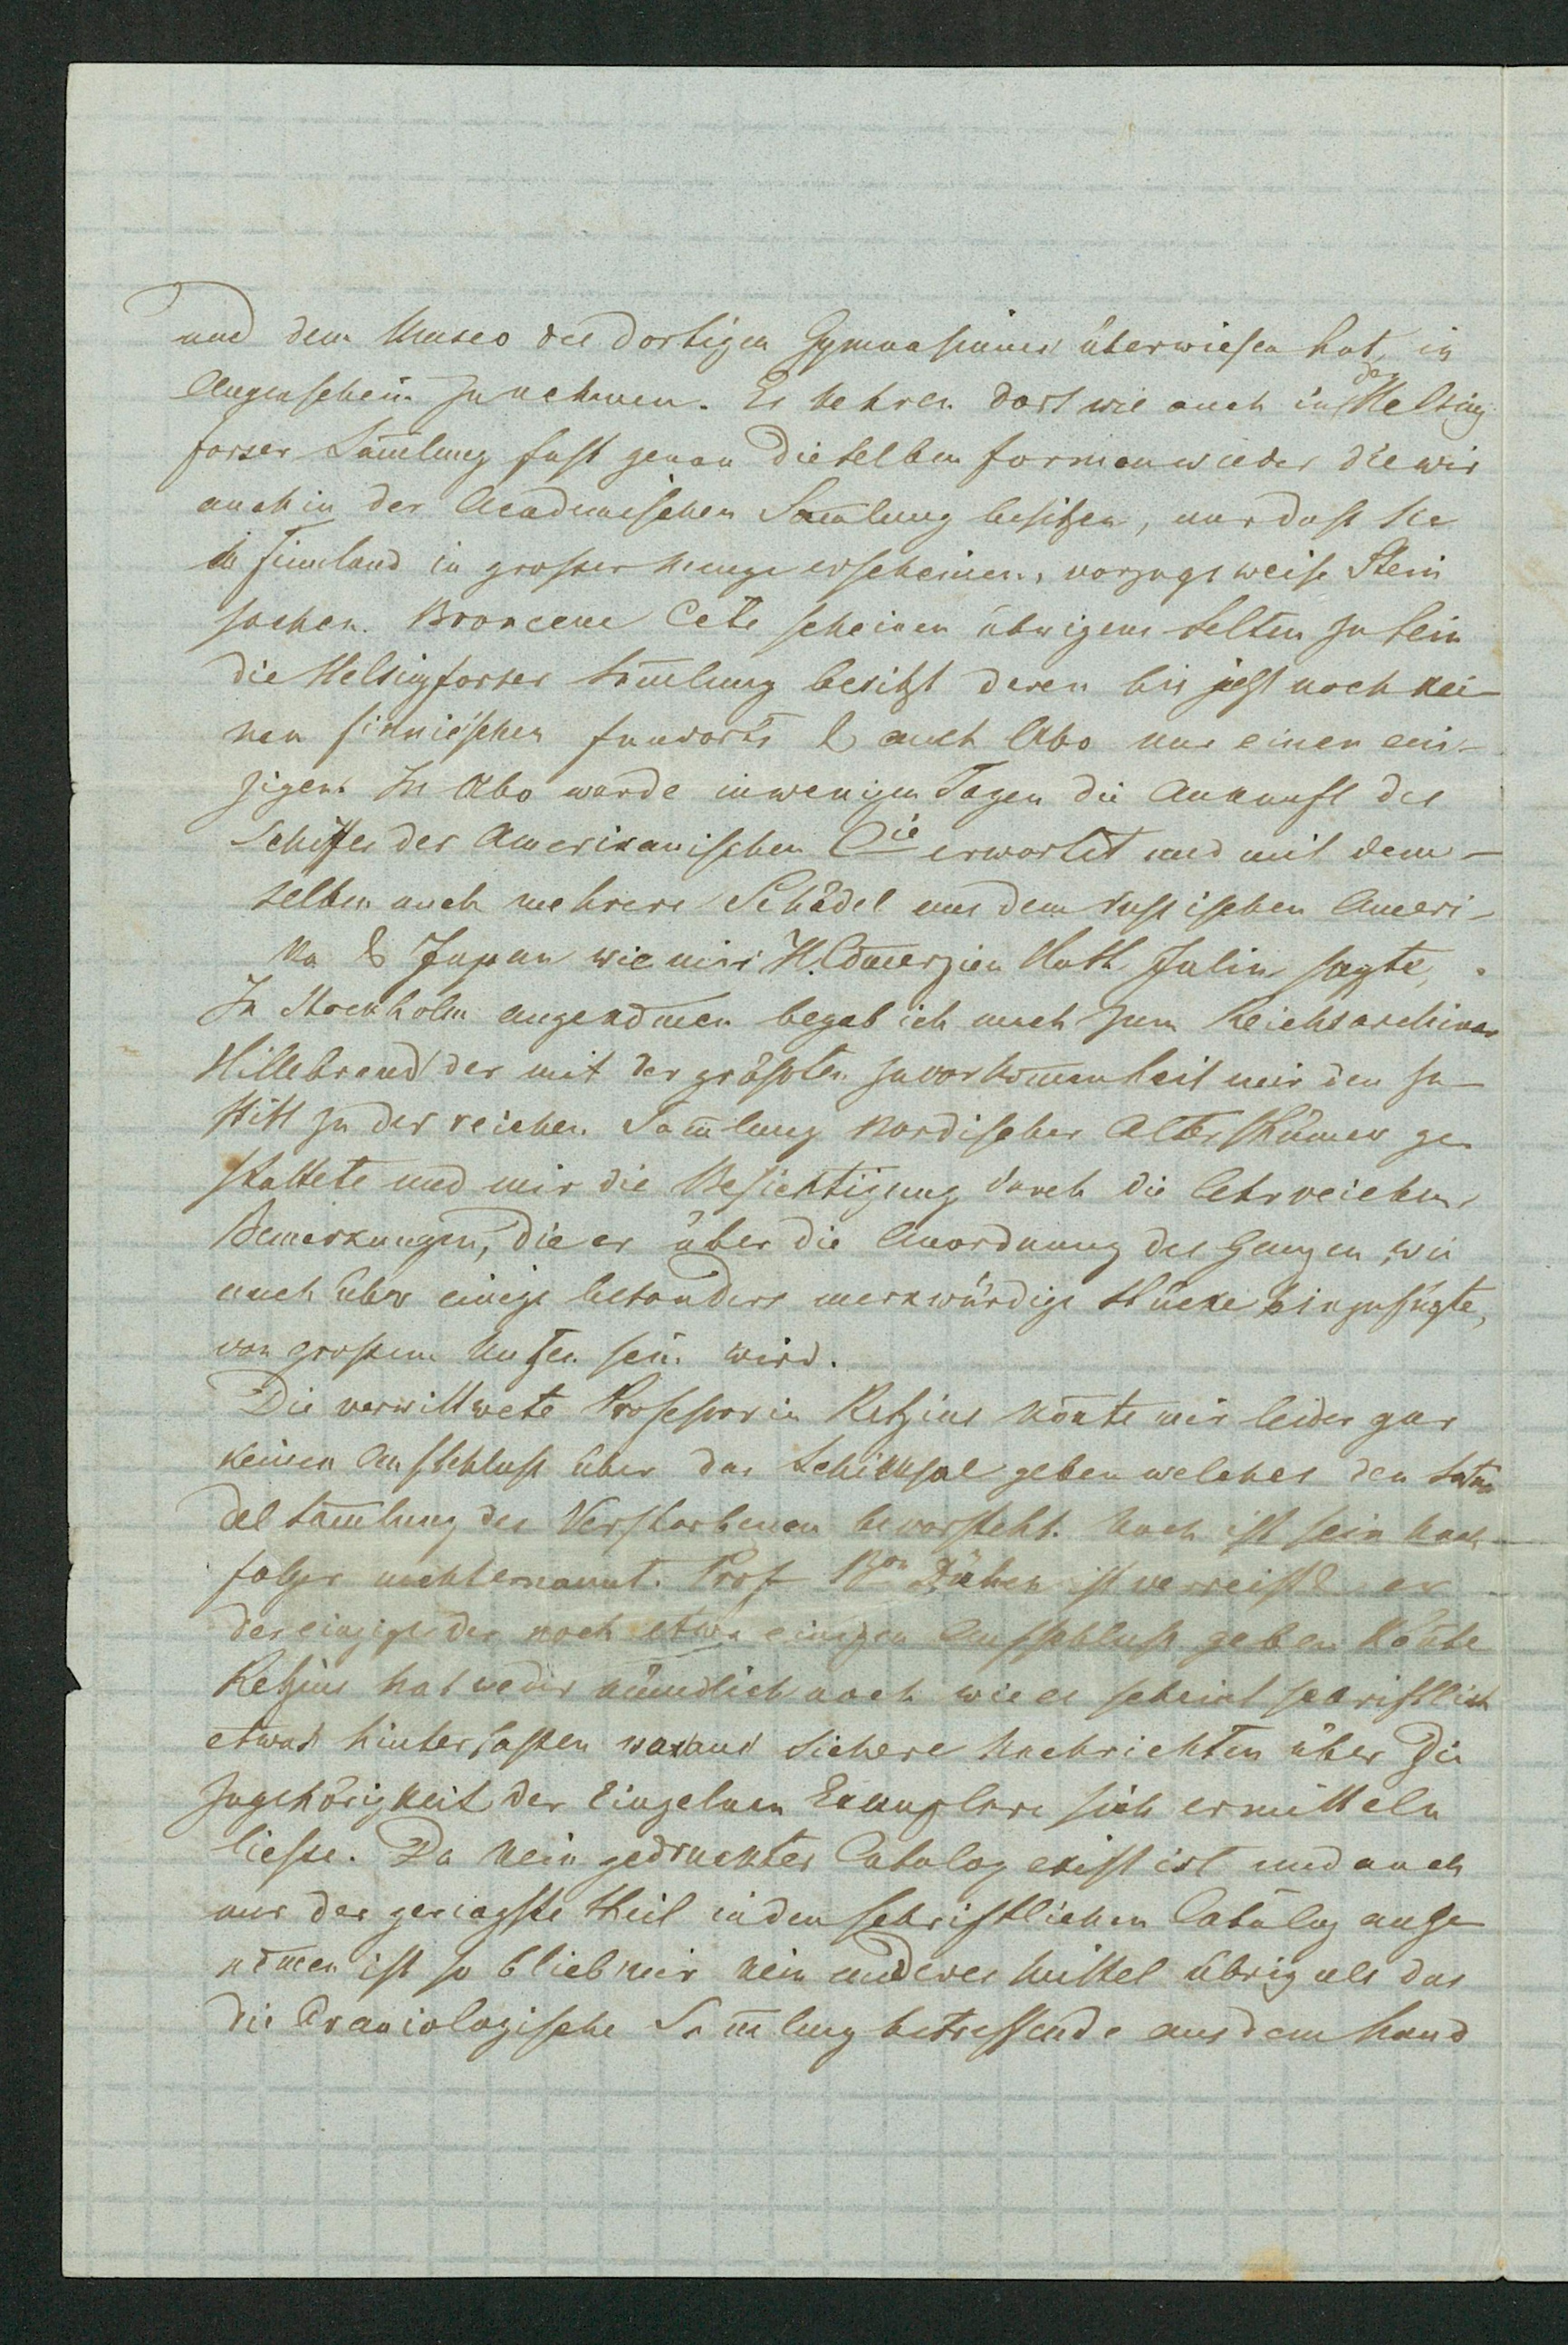 und dem Museo des dortigen Gymnasiums überwiesen hat, in
Augenschein zu nehmen. Es kehren dort wie auch in der Helsing
forser Sam̄lung fast genau dieselben Formen wieder die wir
auch in der Academischen Sam̄lung besitzen, nur dass sie
in Finnland in grosser Menge erscheinen, vorzugsweise Stein
sachen. Broncene Celte scheinen übrigens selten zu sein
die Helsingforser Sam̄lung besitzt deren bis jetzt noch kei-
nen finnischen Funworts & auch Abo nur einen ein-
zigen. In Abo wurde in wenigen Tagen die Ankunft des
Schiffes der Amerikanischen Cie erwartet und mit dem-
selben auch mehrere Schädel aus dem russischen Ameri-
ka & Japan wie mir H. Com̄erzien Rath Julin sagte,
In Stockholm angekom̄en begab ich mich zum Reichsarchivar
Hillebrand der mit der grössten Zuvorkom̄enheit mir den Zu-
tritt zu der reichen Sam̄lung nordischer Alterthümer ge
stattete und mir die Besichtigung durch die lehrreichen
Bemerkungen, die er über die Anordnung des Ganzen, wie
auch über einige besonders merkwürdige Stücke hinzufügte,
von grossem Nutzen sein wird.
Die verwittwete Professorin Retzius kon̄te mir leider gar
keinen Aufschluss über das Schicksal geben welches den Schä
del sam̄lung des Verstorbenen bevorsteht. Noch ist sein Nach-
folger nicht ernannt. Prof Bon Düben ist verreist er
der einzige der noch etwa einigen Aufschluss geben kön̄te
Retzius hat weder mündlich noch wie es scheint schriftlich
etwas hinterlassen woraus sichere Nachrichten über die
Zugehörigkeit der Einzelnen Exemplare sich ermitteln
liesse. Da kein gedruckter Catalog exist ist und auch
nur der geringste Theil in den schriftlichen Catalog aufge
nom̄en ist so blieb mir kein anderes Mittel übrig als das
die Craniologische Sam̄lung betreffende aus dem Hand